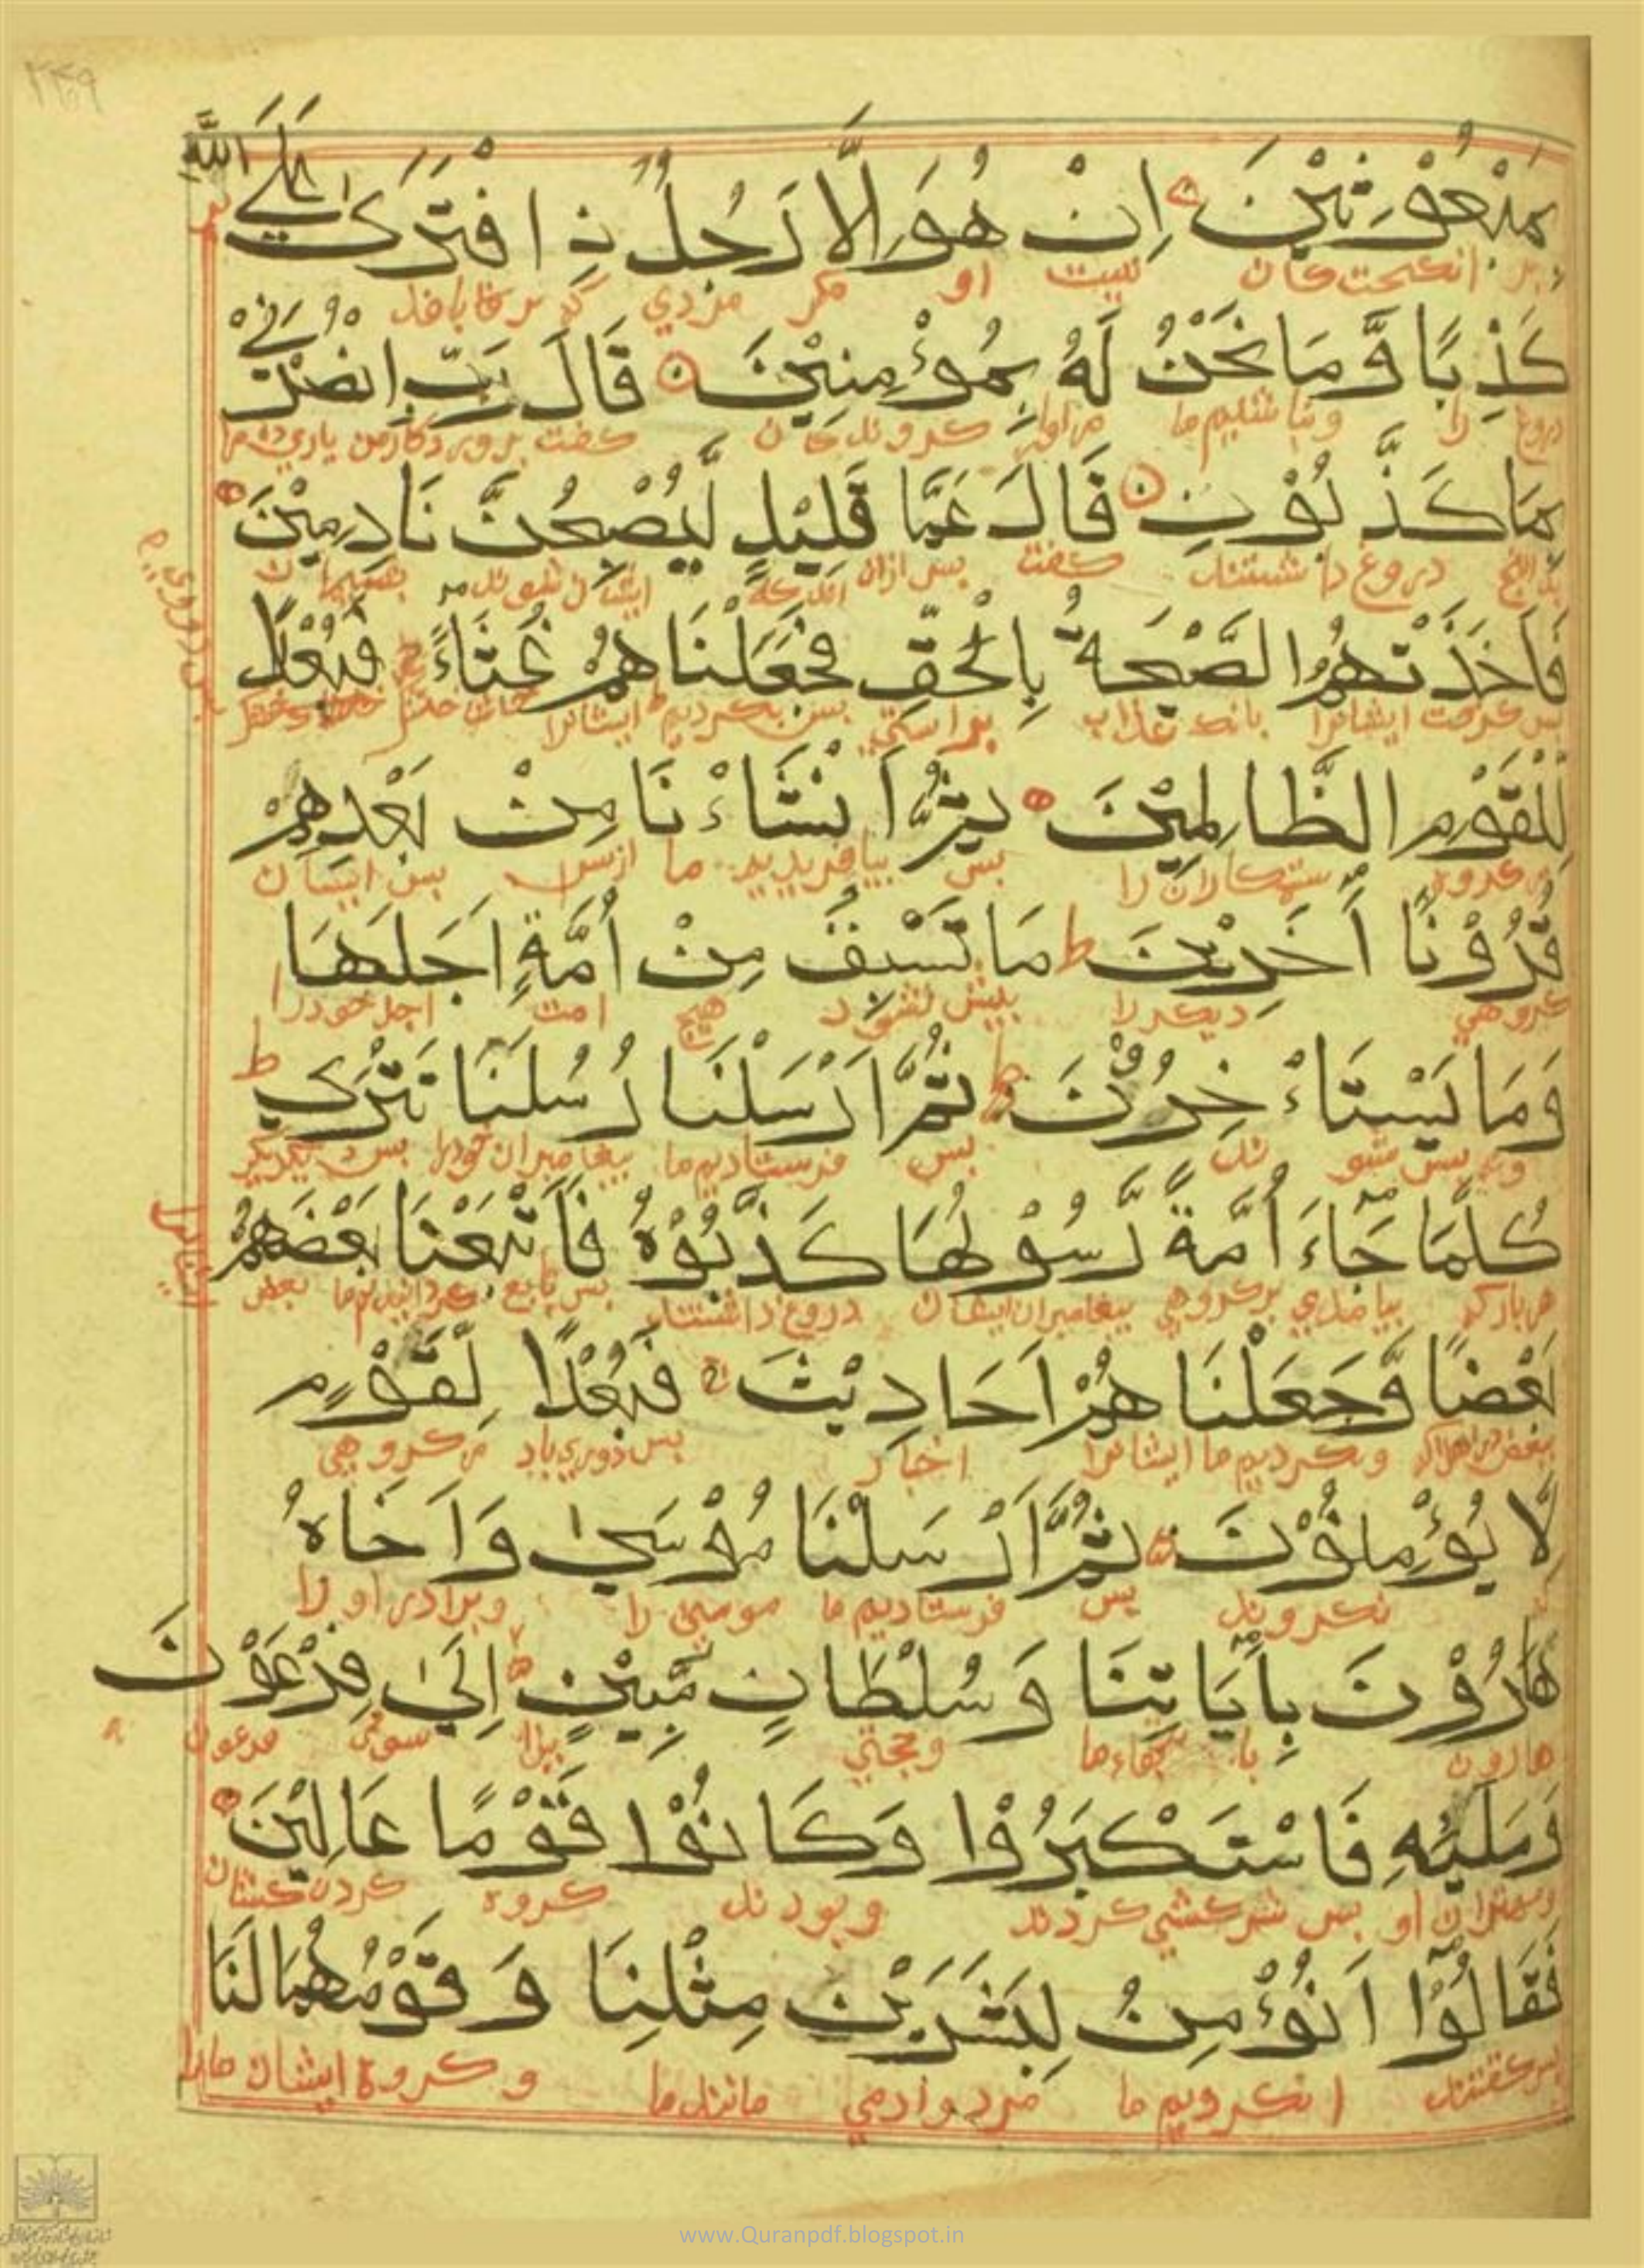 ٣٣٩
بِمَبْعُوْثِيْنَ اِنْ هُوَ اِلَّا رَجُلُ نِ افْتَرٰى عَلَى اللّٰهِ
نیست او مکر مردي که
كَذِبًا وَّمَا نَحْنُ لَهٗ بِمُؤْمِنِيْنَ قَالَ رَبِّ انْصُرْنِيْ
دروغ را ونباشیم ما مر اورا کروندکان کفت پروردکار من یاري ده مرا
بِمَا كَذَّبُوْنِ قَالَ عَمَّا قَلِيْلٍ لَّيُصْبِحُنَّ نَادِمِيْنَ
دروغ داشتند کفت پس ازان اندکه ایشان شوند
فَاَخَذَتْهُمُ الصَّيْحَةُ بِالْحَقِّ فَجَعَلْنَاهُمْ غُثَاءً فَبُعْدًا
پس کرفت ایشانرا بانک عذاب براستي پس بکردیم ایشانرا
لِّلْقَوْمِ الظَّالِمِيْنَ ثُمَّ اَنْشَاءْنَا مِنْ بَعْدِهِمْ
ستمکاران را پس بیافریدیم ما ازپس پس ایشان
قُرُوْنًا اٰخَرِيْنَ مَا تَسْبِقُ مِنْ اُمَّةٍ اَجَلَهَا
کروهي دیکر را پیش نشود هیچ امت اجل خود را
وَمَا يَسْتَاءْخِرُوْنَ ثُمَّ اَرْسَلْنَا رُسُلَنَا تَتْرٰى
پس فرستادیم ما پیغامبران خودرا
كُلَّمَا جَاءَ اُمَّةً رَّسُوْلُهَا كَذَّبُوْهُ فَاَتْبَعْنَا بَعْضَهُمْ
هربارکه بیامدي برکروهي پیغامبران ایشان دروغ داشتند پس تابع کردانیدیم ما بعض
بَعْضًا وَّجَعَلْنَاهُمْ اَحَادِيْثَ فَبُعْدًا لِّقَوْمٍ
وکردیم ما ایشانرا اخبار پس دوري باد مرکروهي
لَّا يُؤْمِنُوْنَ ثُمَّ اَرْسَلْنَا مُوْسٰى وَاَخَاهُ
نکروند پس فرستادیم ما موسي را وبرادر او را
هَارُوْنَ بِاٰيَاتِنَا وَسُلْطَانٍ مُّبِيْنٍ اِلٰى فِرْعَوْنَ
هارون وحجتي سوي فرعون
وَمَلَئِهٖ فَاسْتَكْبَرُوْا وَكَانُوْا قَوْمًا عَالِيْنَ
ومهتران او پس سرکشي کردند وبودند کروه کردن کشان
فَقَالُوْا اَنُؤْمِنُ لِبَشَرَيْنِ مِثْلِنَا وَقَوْمُهُمَا لَنَا
پس کفتند ا نکرویم ما مر دو ادمي مانند ما وکروه ایشان مارا
www.Quranpdf.blogspot.in